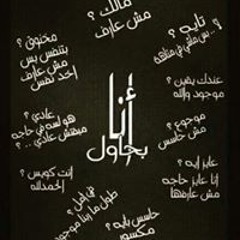 مالك ؟
مش عارف
تايه ؟
مخنوق ؟
بتنفس بس
مش عارف
اخد نفس
عندك يقين ؟
موجود والله
أنا
بحاول
عادي ؟
هو لسه في حاجه
مبقتش عادي .. ؟
موجوع ؟
مش حاسس
عايز ايه ؟
أنا عايز حاجه
مش عارفها
انت كويس ؟
الحمدلله
في أمل ؟
طول ما ربنا موجود
حاسس بايه ؟
مكسور